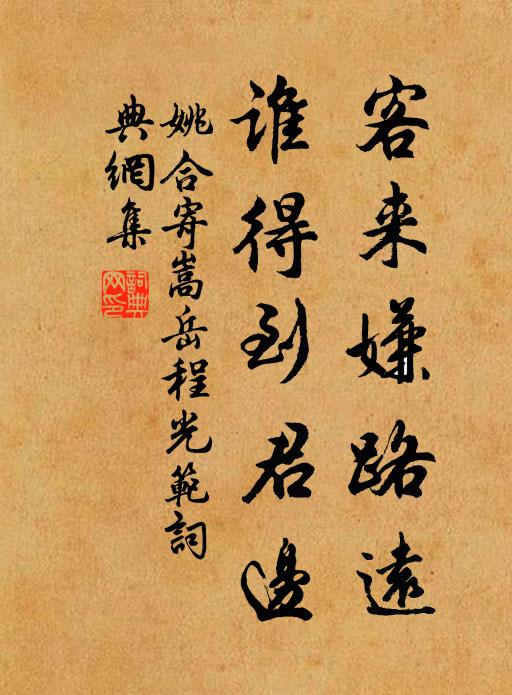 客来嫌路遠
誰得到君邊
姚合寄嵩岳程光範詞
典網集
詞典
网印